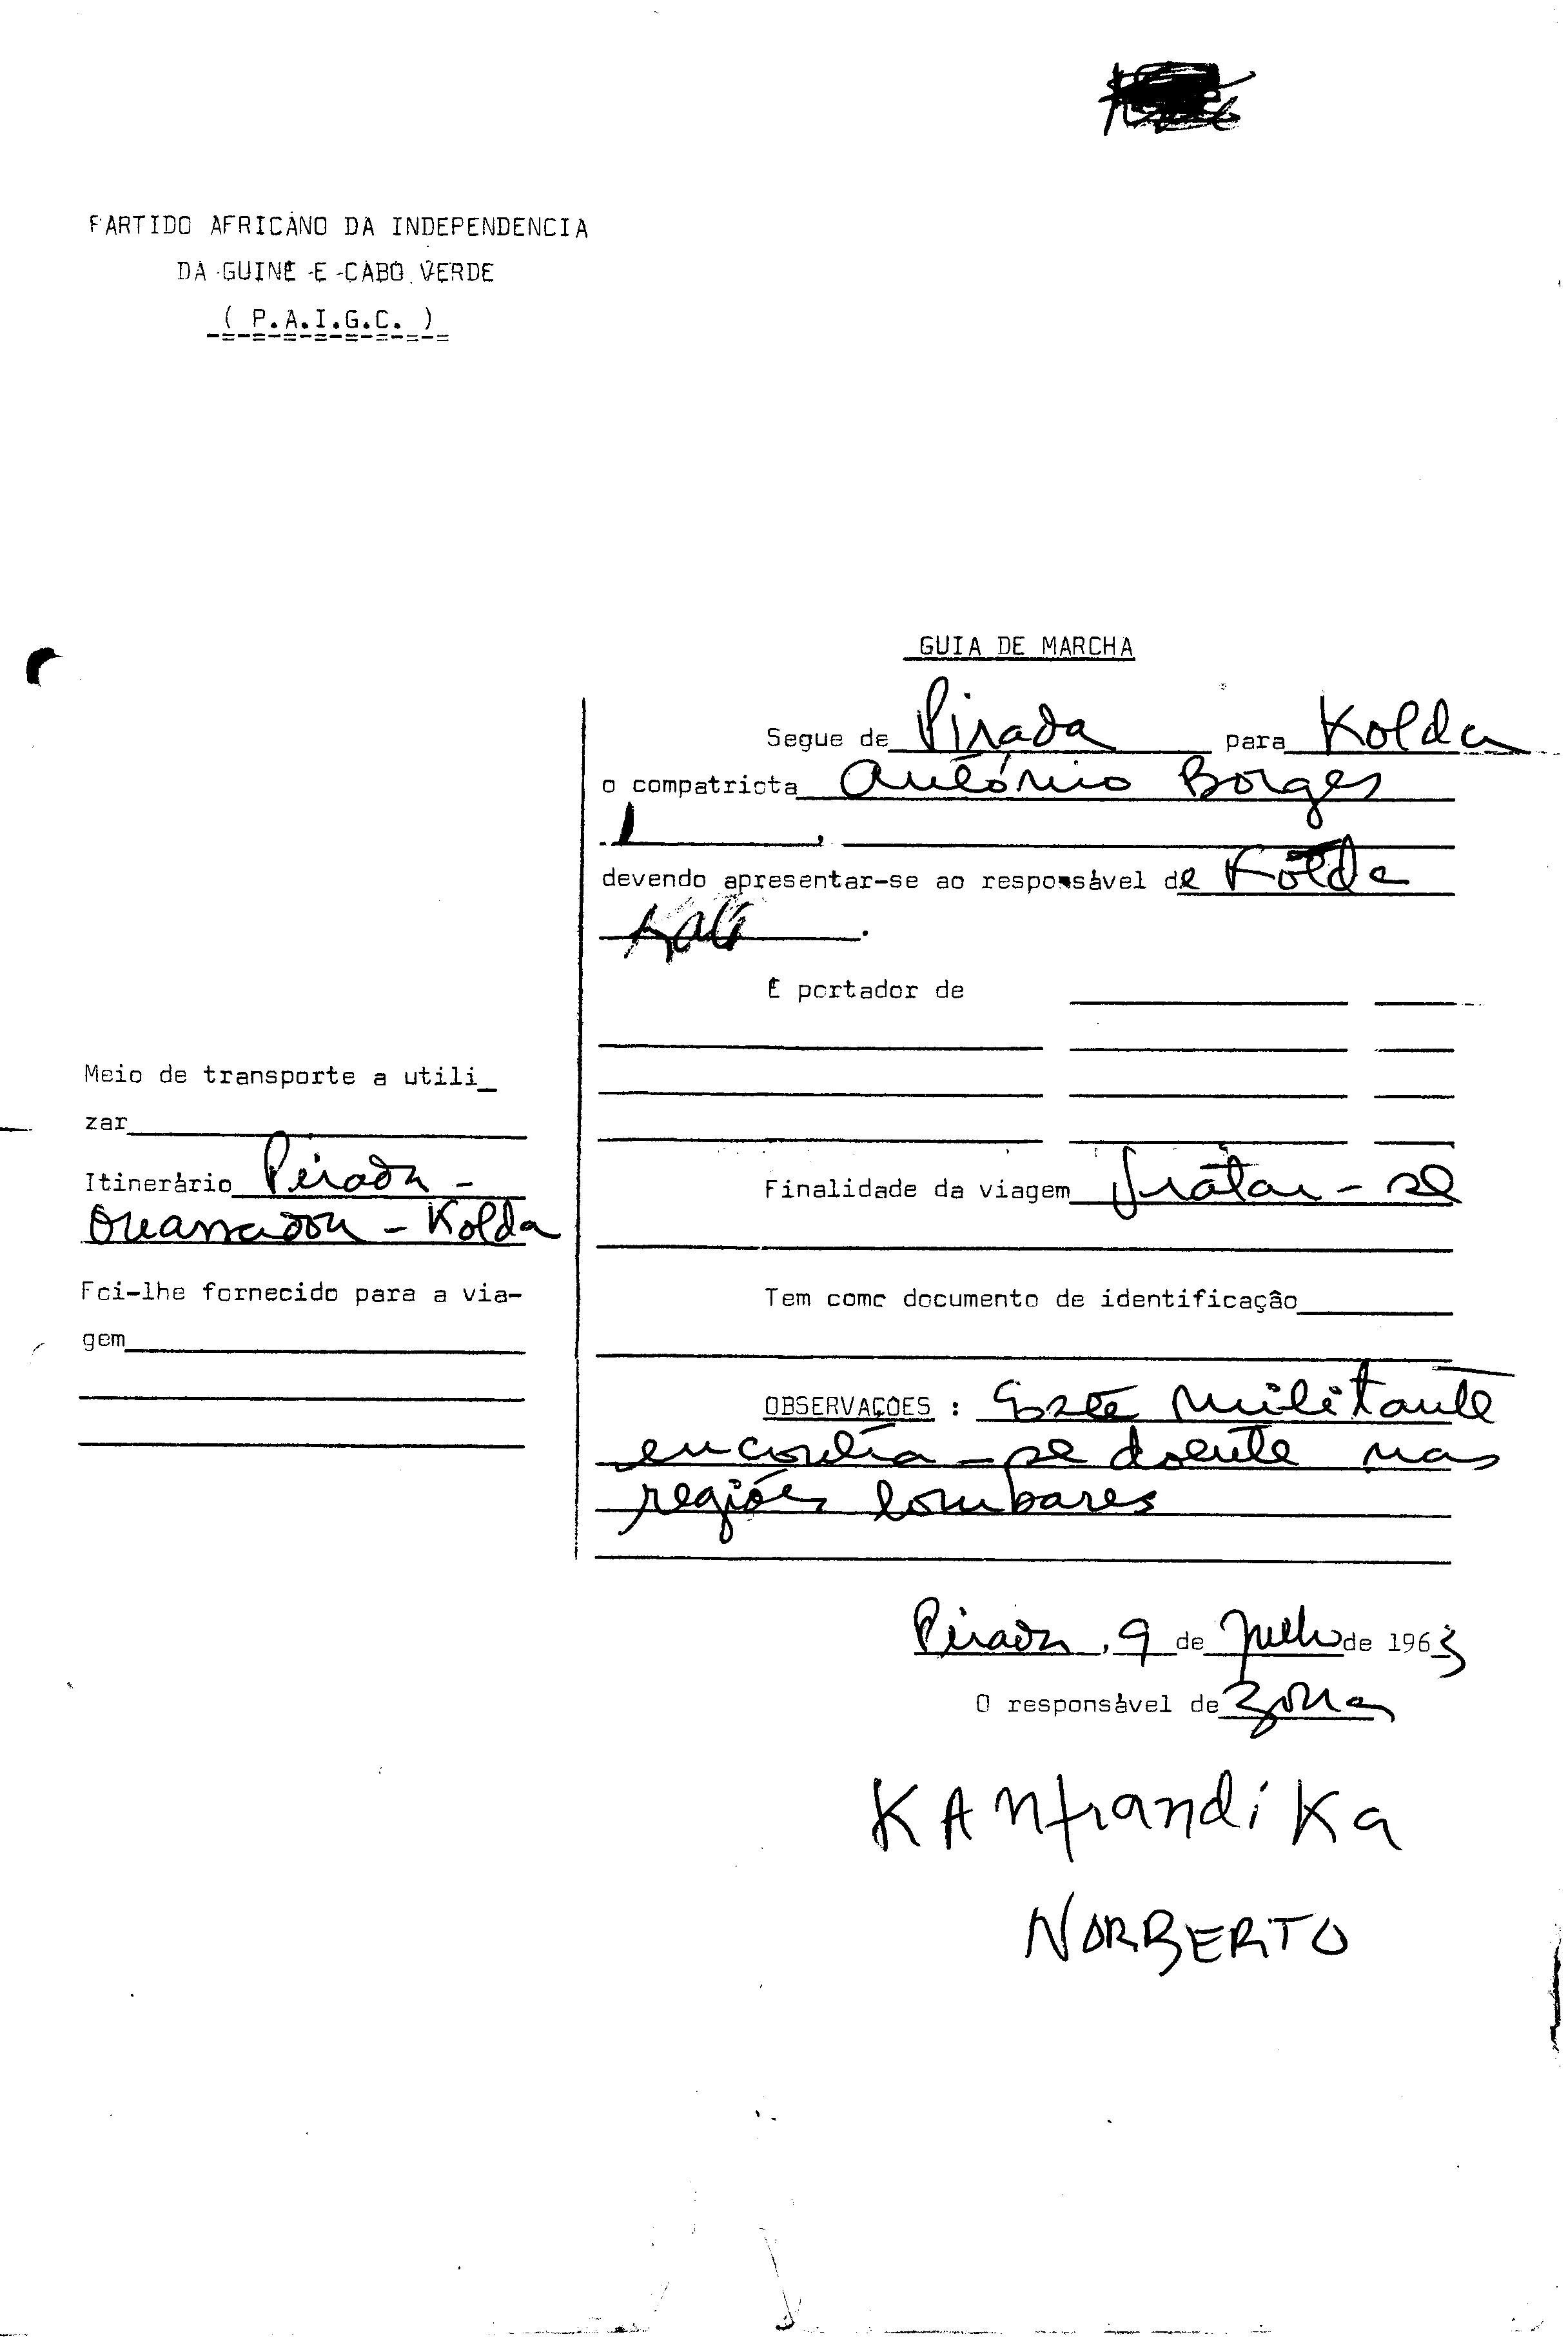 PARTIDO AFRICANO DA INDEPENDENCIA
DA GUINÉ E CABO VERDE
( P.A.I.G.C. )
GUIA DE MARCHA
Segue de Pirada para Kolda
o compatriota António Borges
devendo apresentar-se ao responsável de Kolda
É portador de
Meio de transporte a utili_
zar
Itinerário Pirada -
- Kolda
Finalidade da viagem tratar-se
Foi-lhe fornecido para a via-
gem
Tem como documento de identificação
OBSERVAÇOES : Este militante
encontra-se doente nas
regiões lombares
Pirada, 9 de Julho de 1963
O responsável de zona
KANfrandiKa
NORBERTO